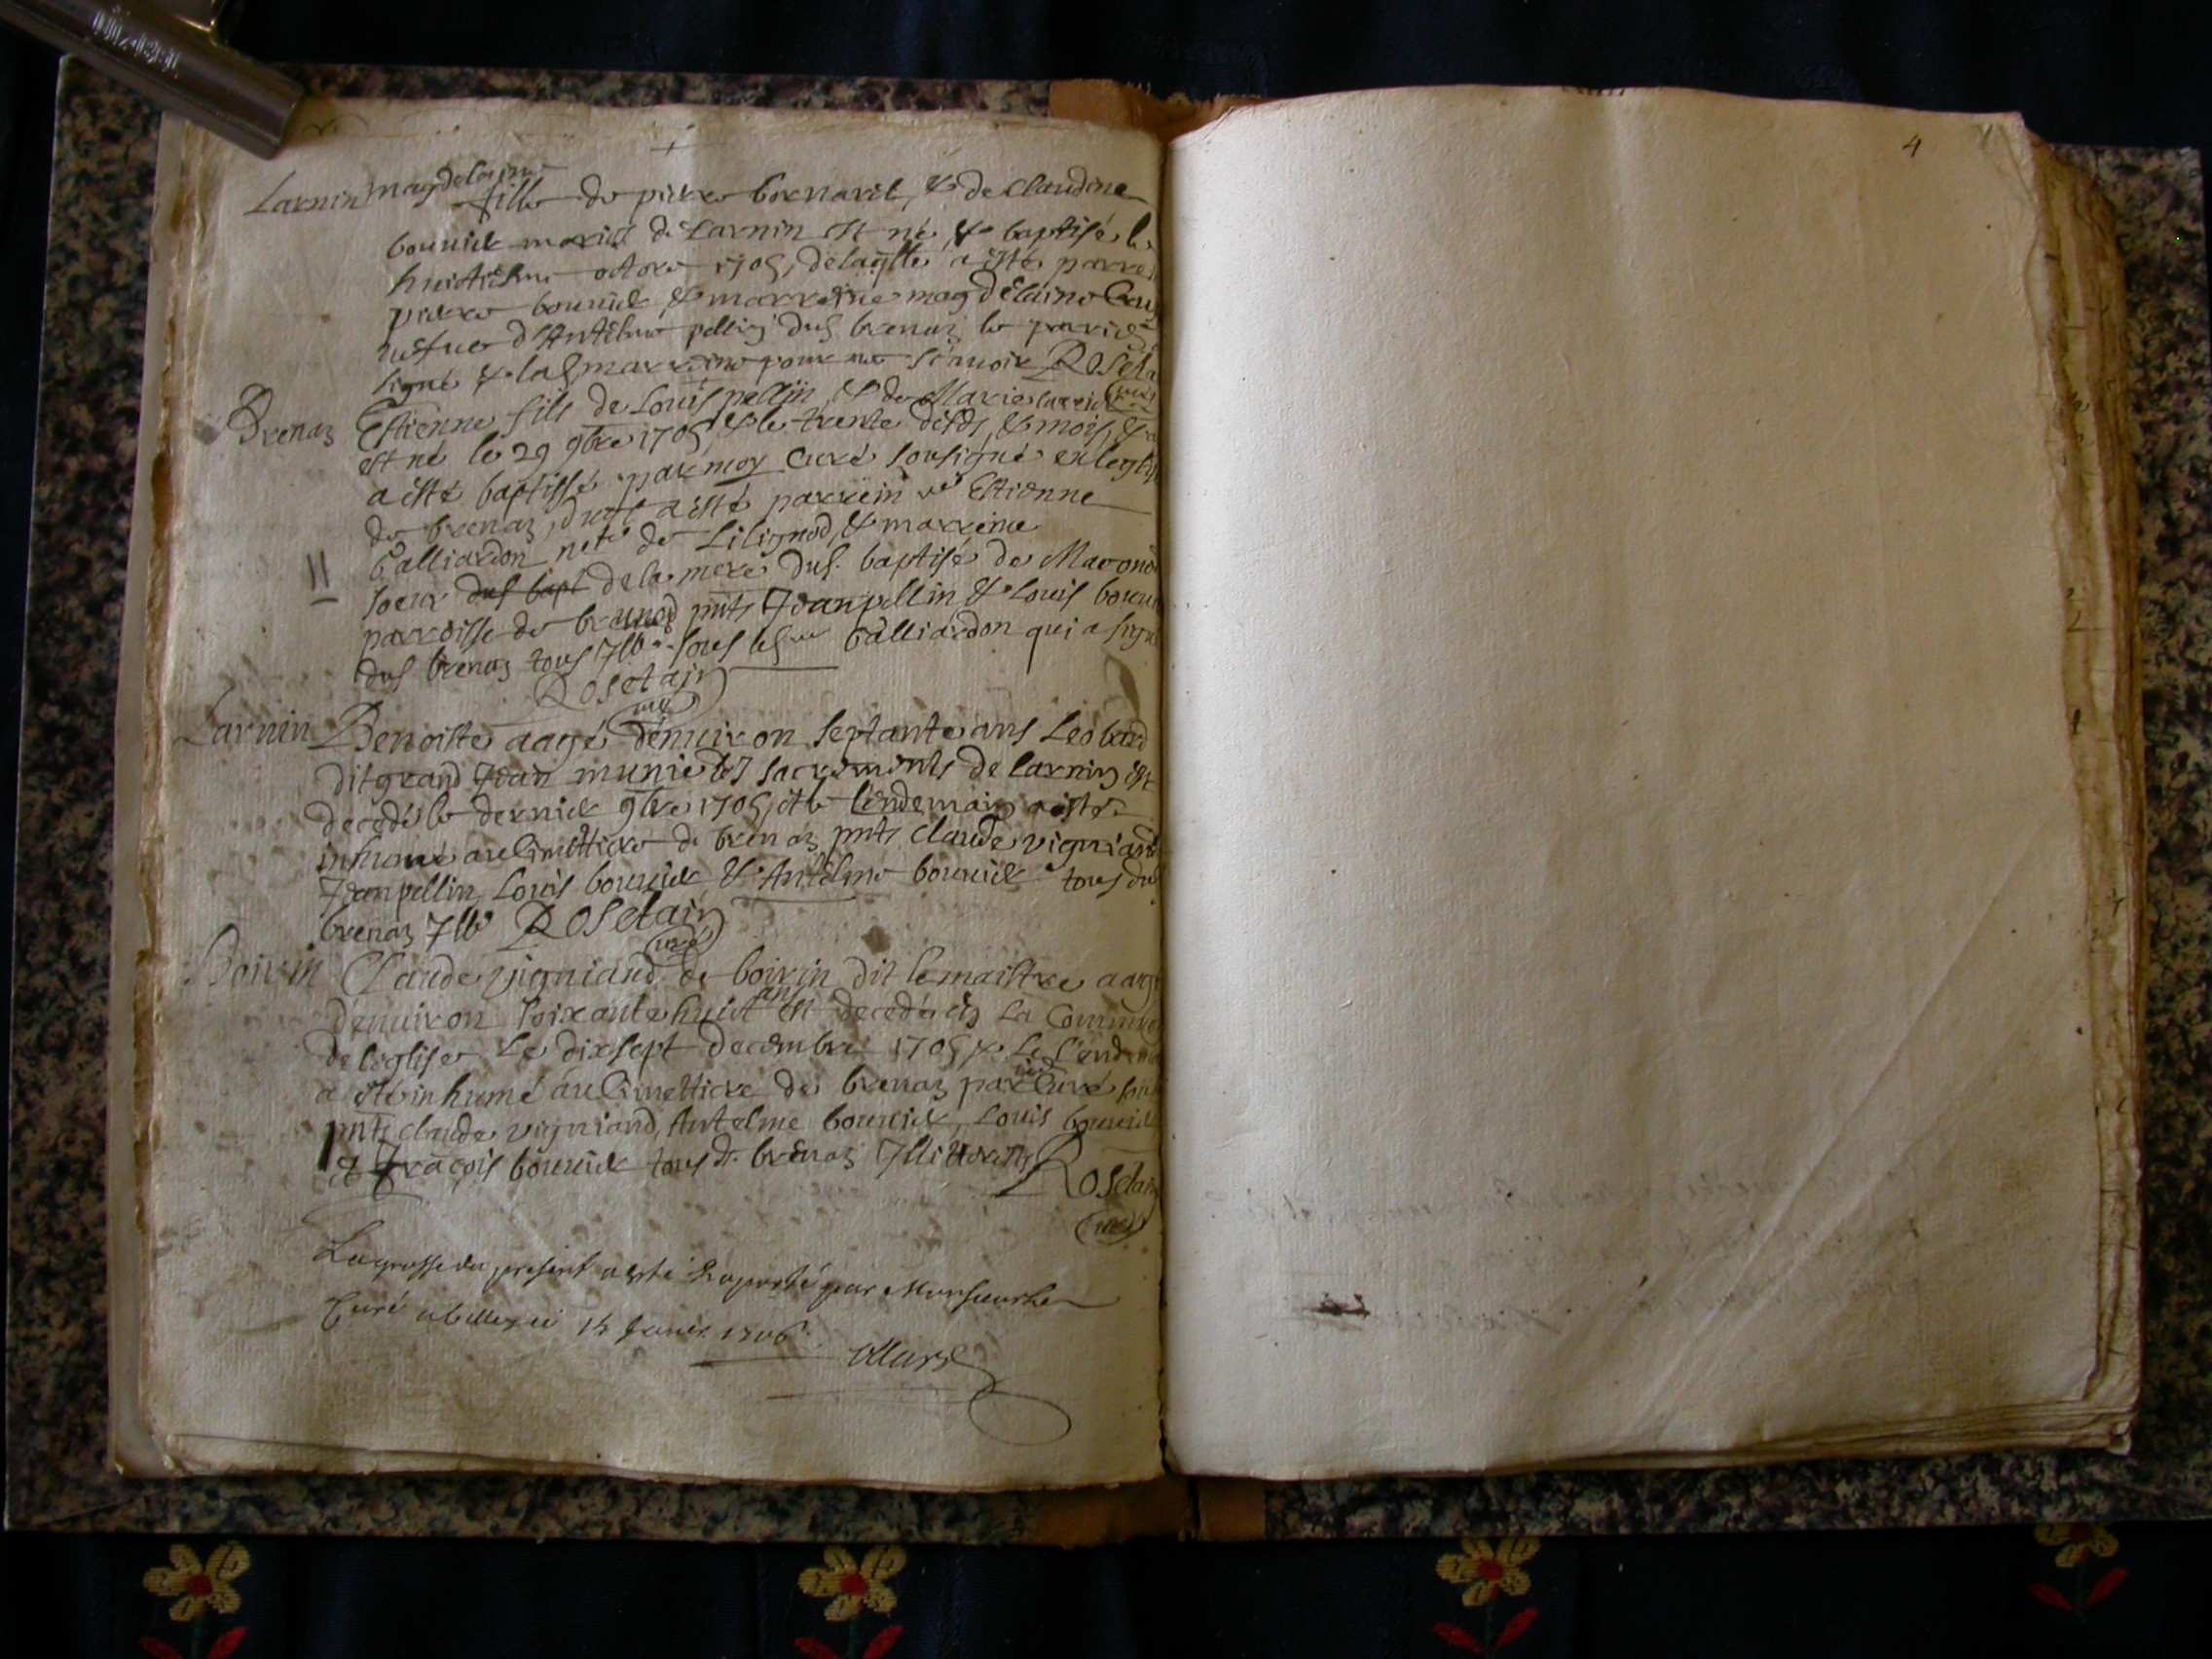 Larnin magdelaine
fille de pierre bornard, & de Claudine
bouvier mariés de Larnin est né, & baptisé le
huictiesme octore 1705, delaqlle a esté parrei
pierre bouvier & marreine magdelaine
d'Antelme pellin dud brenaz le
signé & lad marreine pour ne scavoir Roseta
Brenaz Estienne fils de Louis pellin, & de Marie curé
est né le 29 9bre 1705 & le trente desds, & mois, &
a esté baptissé par moy Curé sousigné en leglis
de brenaz, duql a esté parrein Estienne
Galliardon nore de Lilignod, & marreine
11 soeur dud bapt de la mere dud. baptisé de
parroisse de pnts Jean pellin & Louis bouvi
dud brenaz tous Illr Galliardon qui a sign
Rosetain
curé
Larnin Benoiste aagé denviron septante ans Leobard
dit grand Jean munie des sacrements de Larnin est
decedé le dernier 9bre 1705, et le lendemain a esté
inhumé au Cimettiere de brenaz pnts Claude vigniand
Jean pellin, Louis bouvier & Antelme bouvier tous du
brenaz Illr Rosetain
curé
Boirin Claude vigniand de boirin dit le maistre aagé
denviron soixante huict ans est decedé en La Commu
de leglise Le dix sept decembre 1705 & Le l'endem
a esté inhumé au Cimettiere de brenaz par Curé sou
pnts claude vigniand, Antelme bouvier, Louis bouvier
et fraçois bouvier tous de brenaz Illitores Rosetain
curé
La grosse du present a esté Raporté par Monsieur Le
Curé a belley ce 15 Janvr 1706
4